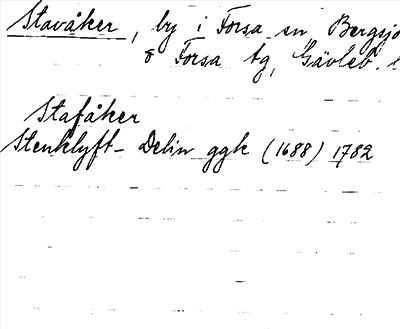 Stavåker, by i Forsa sn, Bergsjö
o Forsa tg, Gävleb.
Stafåker
Stenklyft- Delin ggk (1688) 1782